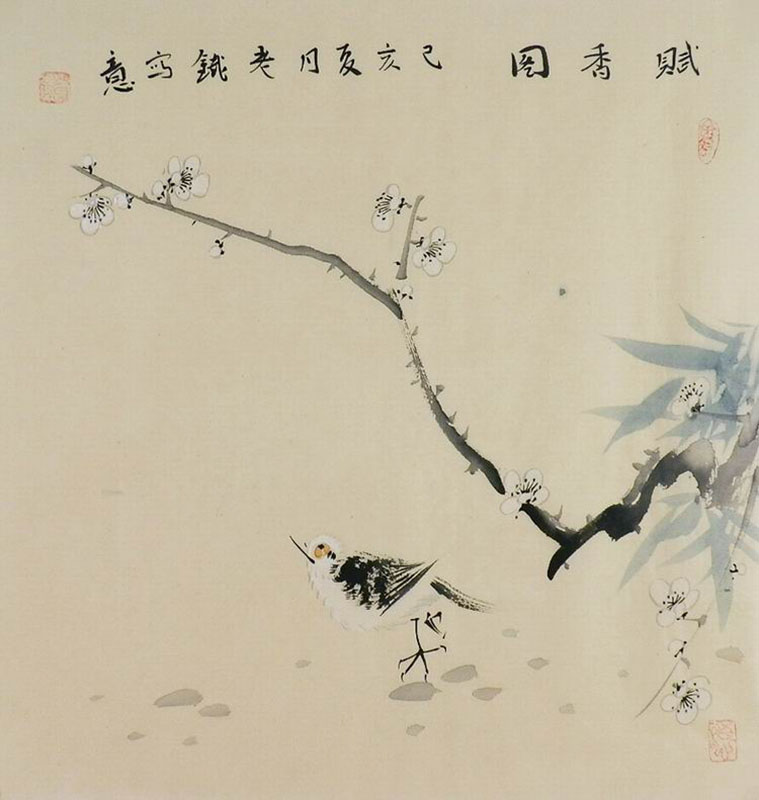 賦香图
己亥夏月老鐵写意